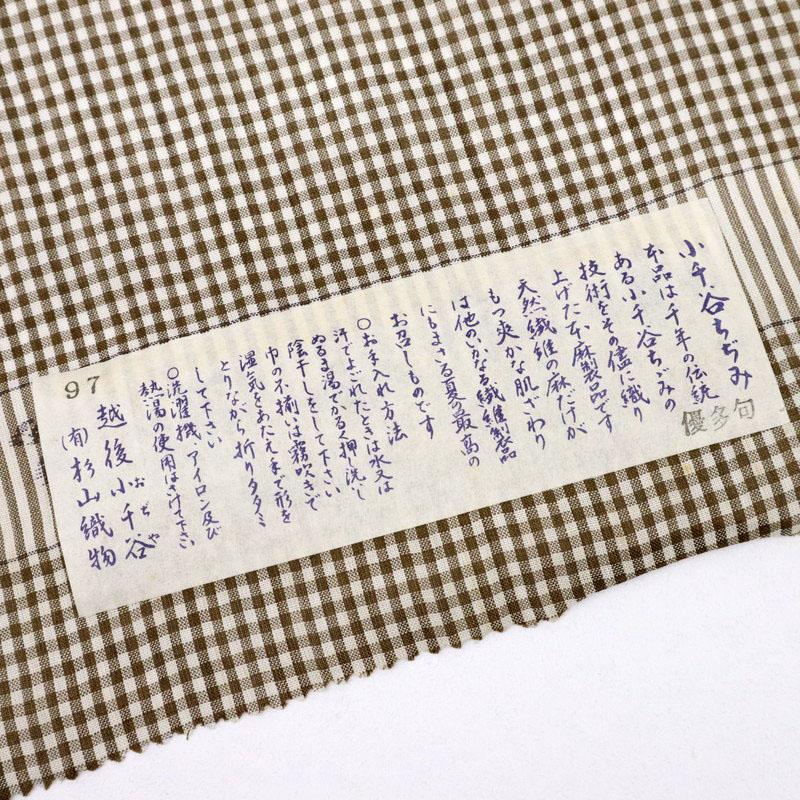 小千谷ちぢみ
本品は千年の伝統
ある小千谷ちぢみの
技術をその儘に織り
上げた本麻製品です
天然繊維の麻だけが
もつ爽かな肌ざわり
は他のいかなる繊維製品
にもまさる夏の最高の
お召しものです
○お手入れ方法
汗でよごれたときは水又は
ぬるま湯でかるく押洗し
陰干しをして下さい
巾の不揃いは霧吹きで
湿気をあたえ手で形を
とりながら折りタタミ
して下さい
○洗濯機、アイロン及び
熱湯の使用はさけ下さい
越後小千谷
おぢや
(有)杉山織物
97
優多句